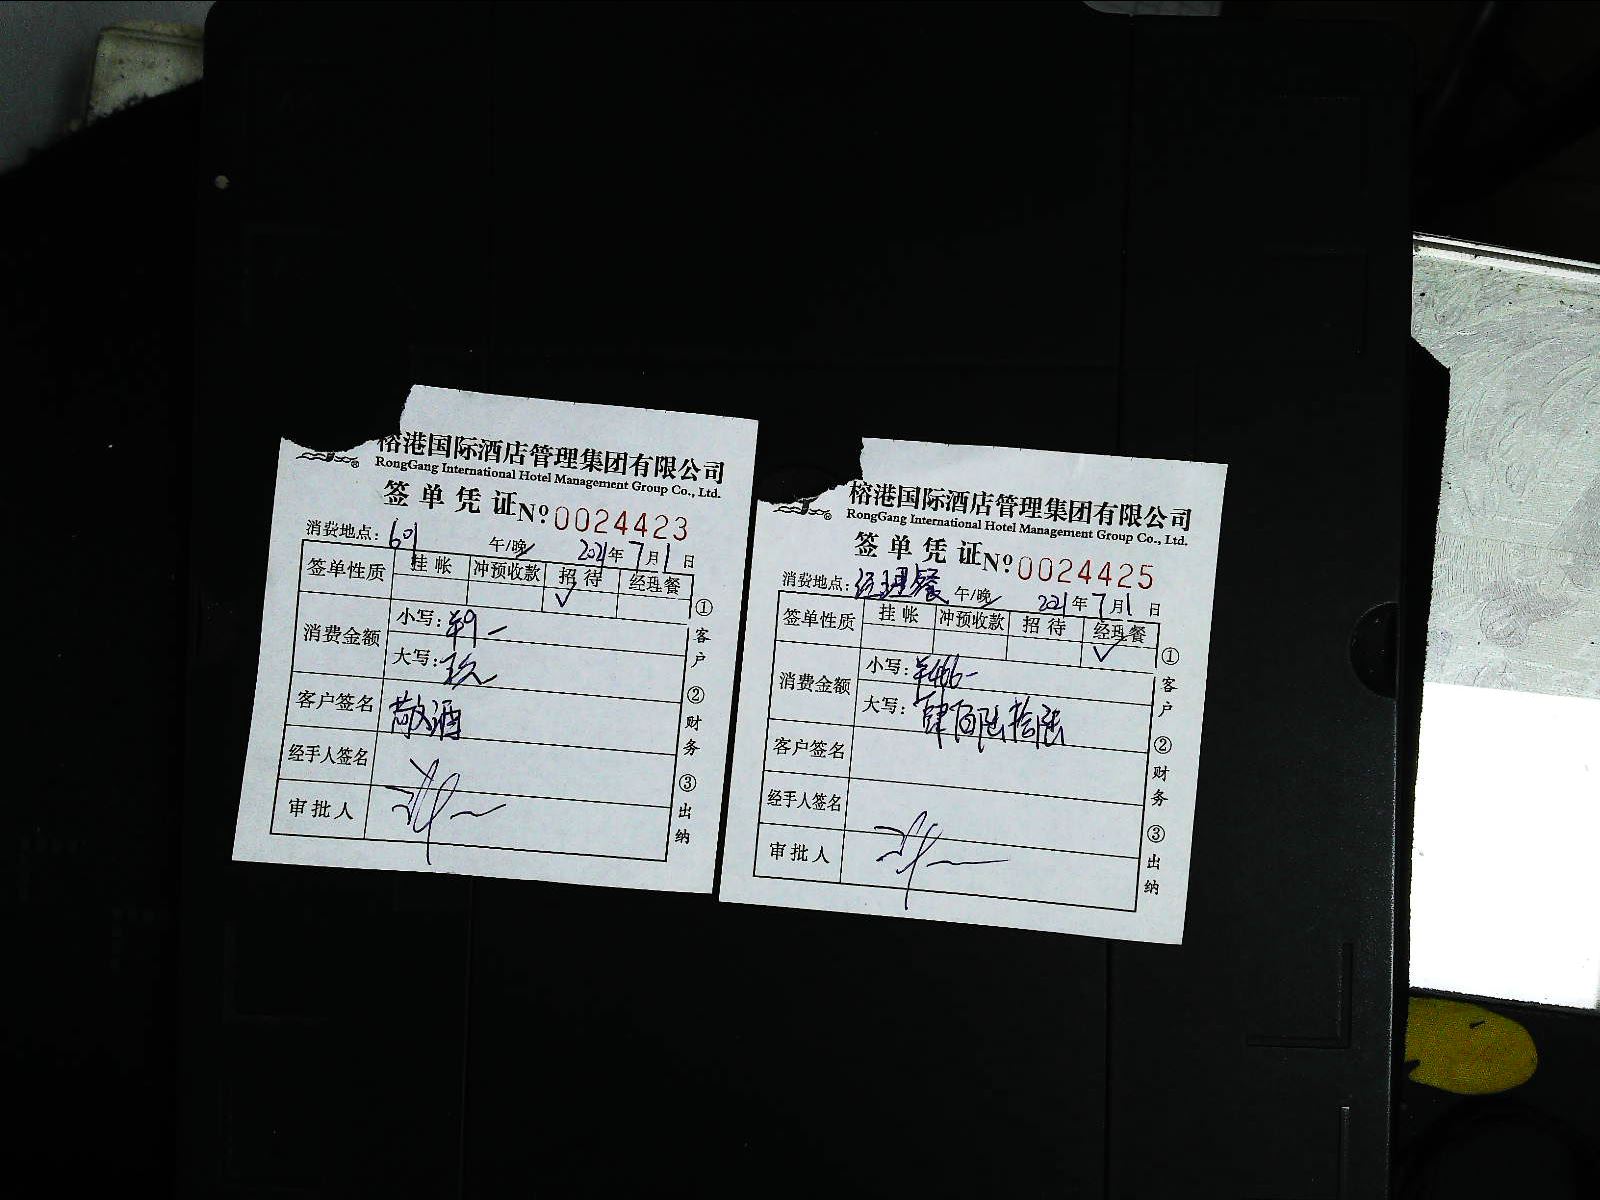 榕港国际酒店管理集团有限公司
RongGang International Hotel Management Group Co., Ltd.
签单凭证 Nº 0024423
消费地点: 601 午/晚 2021年7月1日
签单性质 挂帐 冲预收款 招待 经理餐
✓
消费金额 小写: ¥9—
大写: 玖
客户签名 敬酒
经手人签名
审批人
①客户 ②财务 ③出纳
榕港国际酒店管理集团有限公司
RongGang International Hotel Management Group Co., Ltd.
签单凭证 Nº 0024425
消费地点: 经理餐 午/晚 2021年7月1日
签单性质 挂帐 冲预收款 招待 经理餐
✓
消费金额 小写: ¥466—
大写: 肆佰陆拾陆
客户签名
经手人签名
审批人
①客户 ②财务 ③出纳